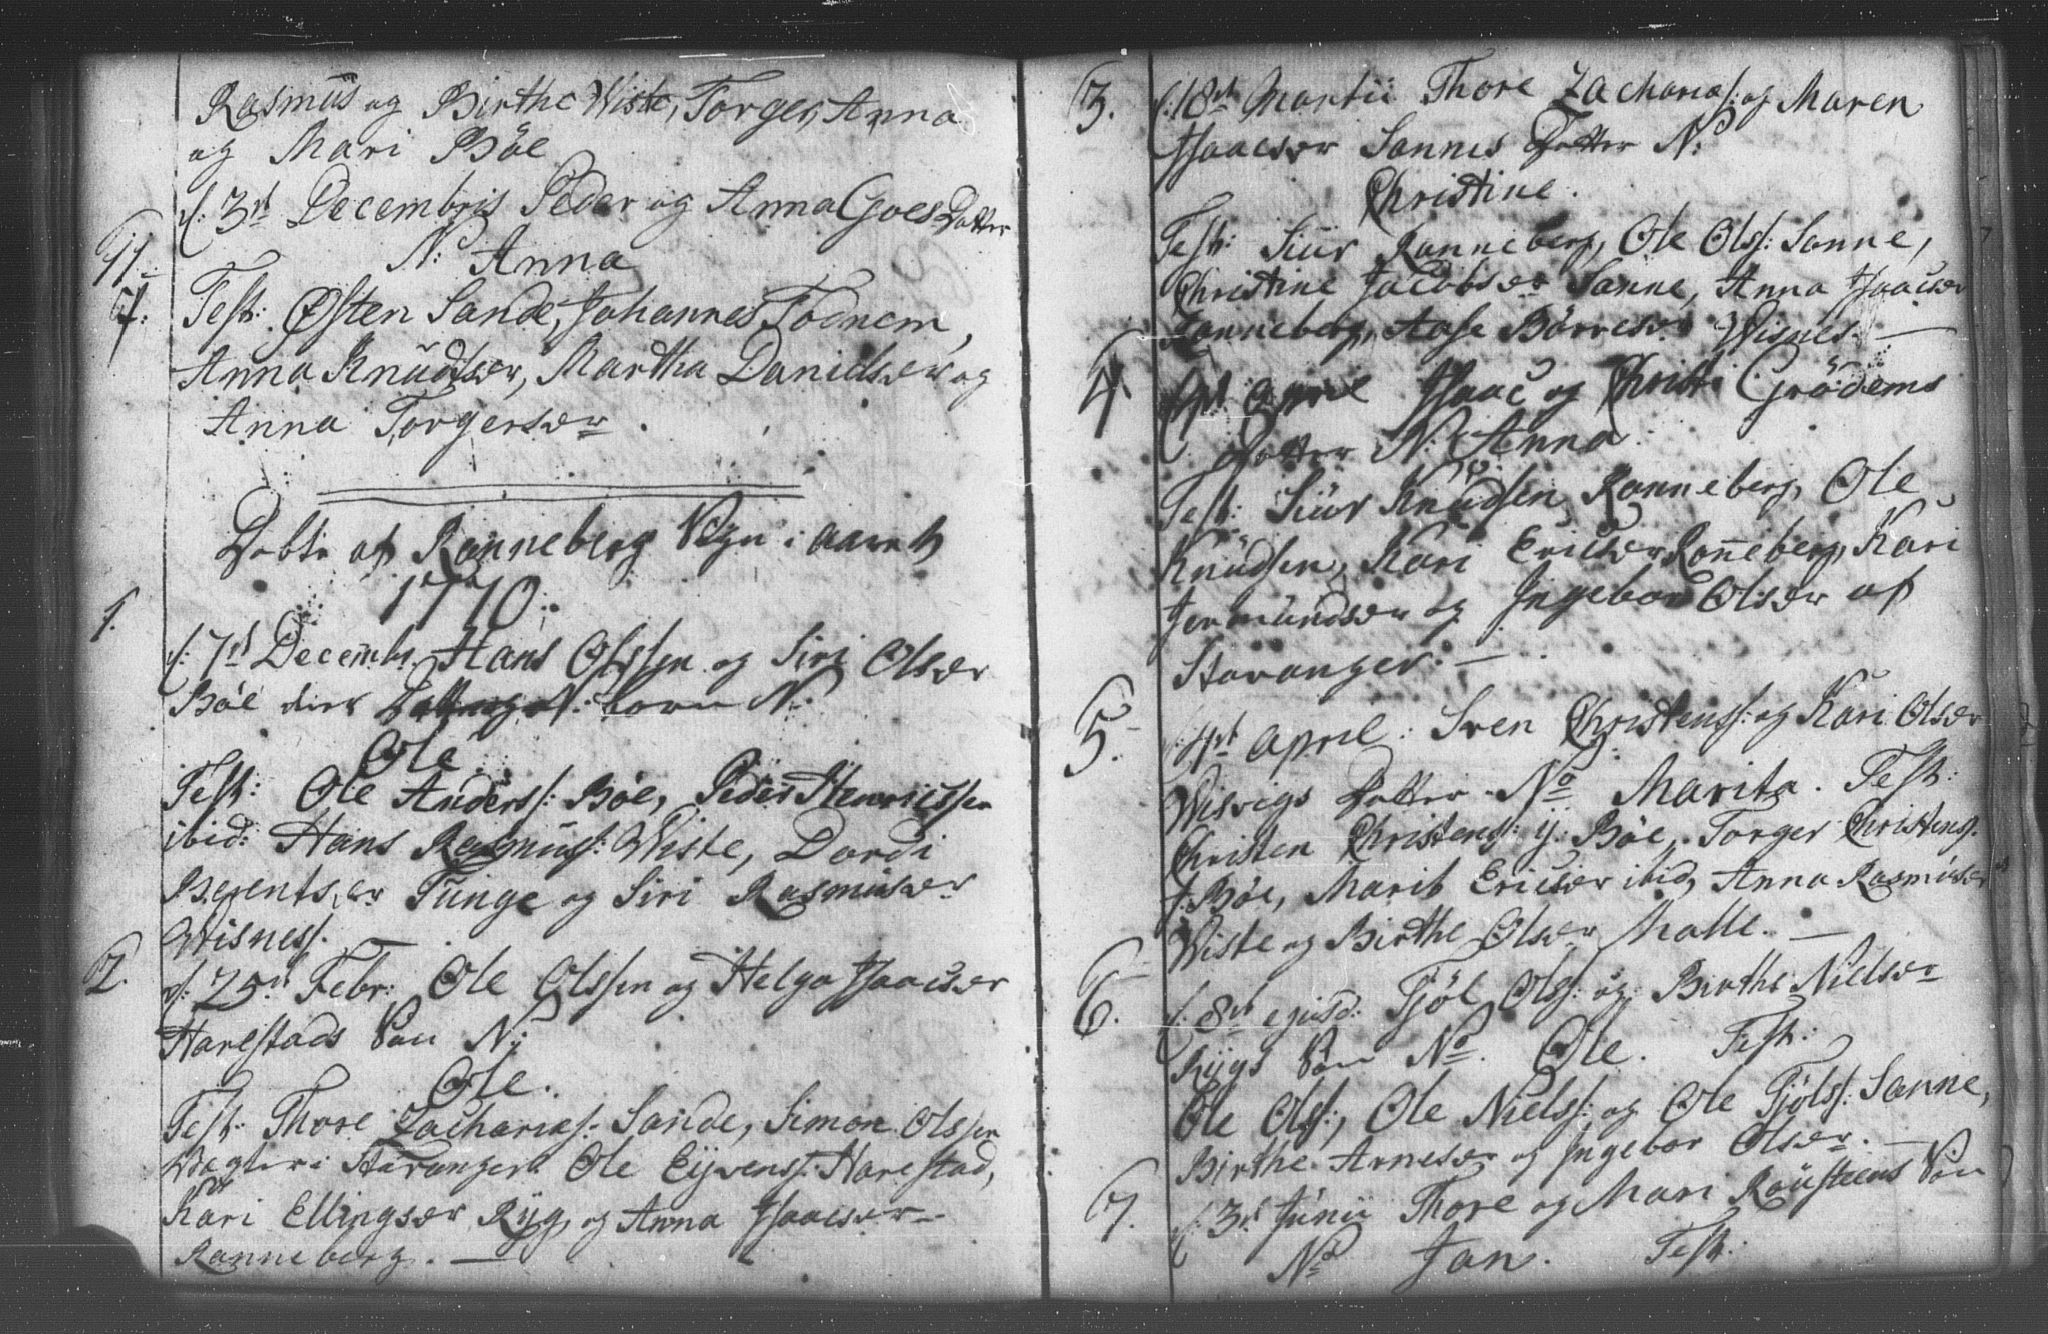 Rasmüs og Birthe Wiste, Torger, Anna
og Mari Böe
d: 3die Decembris Peder og Anna Goes Datter
11. N: Anna
Test: Østen Sande, Johannes Todnem,
Anna Knüdsær, Martha Danielsær og
Anna Torgersær.
Döbte af Ranneberg Sogn i aaret
1770.
1.
d: 7de Decembr. Hans Olssen og Siri Olsær
Böe deres barn N:
Ole
Test: Ole Anderss: Böe, Peder Henricssen
ibid: Hans Rasmüss: Wiste, Dordi
Berentsær Tünge og Siri Rasmüsær
Wisness.
2. d: 25de Febr: Ole Olssen og Helga Isaacsær
Harestads Sön N:
Ole.
Test: Thore Zacharias: Sande, Simon Olssen
Wegter i Stavanger Ole Eyvens: Harestad,
Kari Ellingsær Ryg, og Anna Isaacsær
Ranneberg. —
3. d: 18de Martii Thore Zacharias: og Maren
Isaacsær Sannes Datter N:
Christine.
Test: Siür Ranneberg, Ole Olss: Sanne,
Christine Jacobsær Sanne, Anna Isaacsær
Ranneberg, Aase Börresær Wisnes. —
4. April Isaac og Christi Grödems
Datter N: Anna.
Test: Siür Knüdsen Ranneberg, Ole
Knüdsen, Kari Ericsær Ranneberg, Kari
Jermundsær og Ingebor Olsær af
Stavanger. —
5. 4de April: Sven Christenss: og Kari Olsær
Wisvigs Datter No Marita. Test:
Christen Christens: y: Böe, Torger Christens.
Böe, Marit Ericsær ibid, Anna Rasmüsær
Wiste og Birthe Olsær Malle. —
6. d: 8de ejusd: Tjöl Olss: og Birthe Nielsær
Rygs Sön No. Ole. Test:
Ole Olss:, Ole Nielss: og Ole Tjöls: Sanne,
Birthe Arnesær og Ingebor Olsær. —
7. d: 3de Junii Thore og Mari Raüsteens Sön
No Jan. Test: